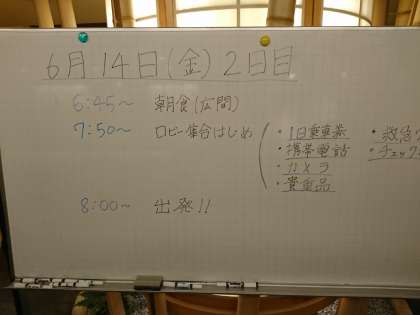 6月14日(金)2日目
6:45〜 朝食(広間)
7:50〜 ロビー集合はじめ
・1日乗車券
・携帯電話
・カメラ
・貴重品
・救急
・チェック
8:00〜 出発!!